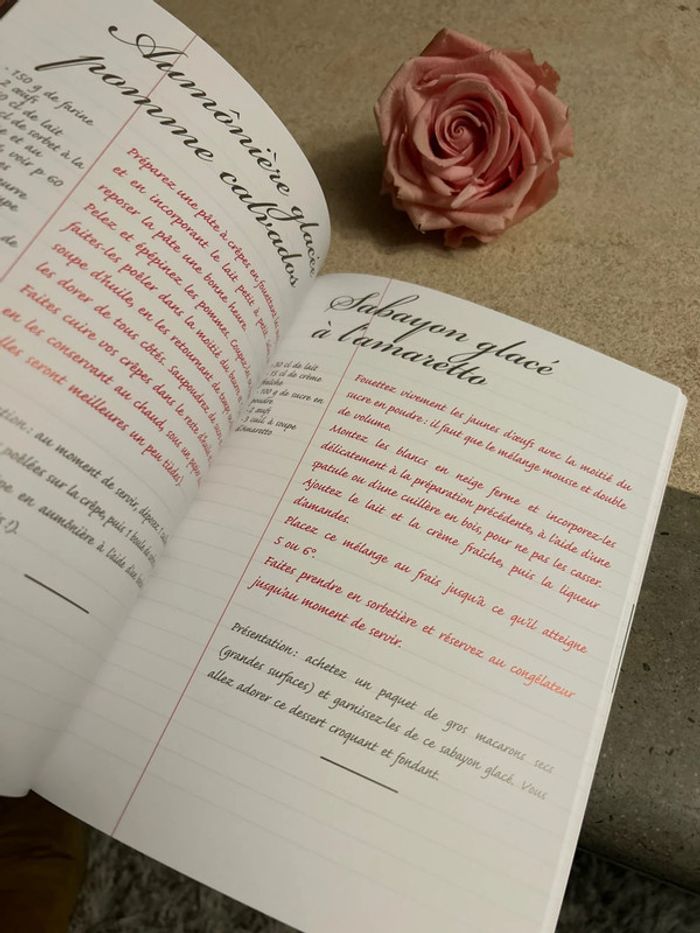 Aumônière glacée
pomme calvados
- 150 g de farine
2 œufs
cl de lait
cl de sorbet à la
et au
voir p 60
de
Préparez une pâte à crêpes en fouettant
et en incorporant le lait petit à petit
reposer la pâte une bonne heure.
Pelez et épépinez les pommes. Coupez-les
faites-les poêler dans la moitié du beurre
soupe d'huile, en les retournant
les dorer de tous côtés. Saupoudrez de sucre
Faites cuire vos crêpes dans le reste
en les conservant au chaud, sous un papier
elles seront meilleures un peu tièdes).
: au moment de servir, disposez
poêlées sur la crêpe, puis 1 boule de
en aumônière à l'aide d'un
Sabayon glacé
à l'amaretto
- 30 cl de lait
- 15 cl de crème
fraîche
- 100 g de sucre en
poudre
- 2 œufs
- 3 cuil. à soupe
d'Amaretto
Fouettez vivement les jaunes d'œufs avec la moitié du
sucre en poudre : il faut que le mélange mousse et double
de volume.
Montez les blancs en neige ferme et incorporez-les
délicatement à la préparation précédente, à l'aide d'une
spatule ou d'une cuillère en bois, pour ne pas les casser.
Ajoutez le lait et la crème fraîche, puis la liqueur
d'amandes.
Placez ce mélange au frais jusqu'à ce qu'il atteigne
5 ou 6°.
Faites prendre en sorbetière et réservez au congélateur
jusqu'au moment de servir.
Présentation : achetez un paquet de gros macarons secs
(grandes surfaces) et garnissez-les de ce sabayon glacé. Vous
allez adorer ce dessert croquant et fondant.